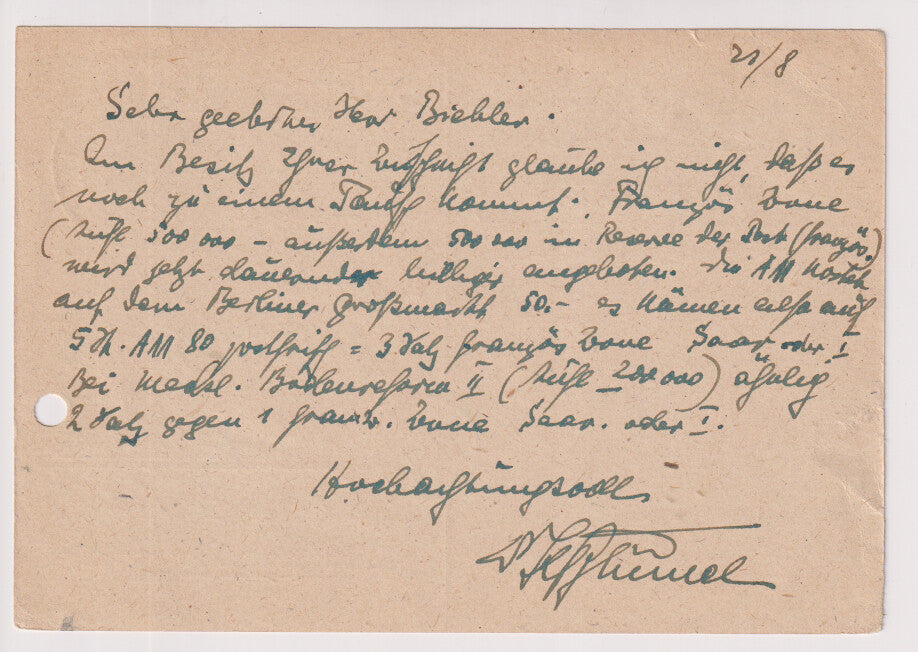 21/8
Sehr geehrter Herr Biehler.
Im Besitz Ihrer Zuschrift glaube ich nicht, daß es
noch zu einem Tausch kommt. Französ Zone
(Aufl 500 000 – außerdem 500 000 in Reserve der Post (französ.)
wird jetzt dauernder billiger angeboten. Die AM kostet
auf dem Berliner Großmarkt 50.- es kämen also auf
5 St. AM 80 = 3 Satz Französ Zone Saar oder I
Bei Meckl. Bodenreform II (Aufl 200 000) ähnlich
2 Satz gegen 1 franz. Zone Saar. oder I.
Hochachtungsvoll